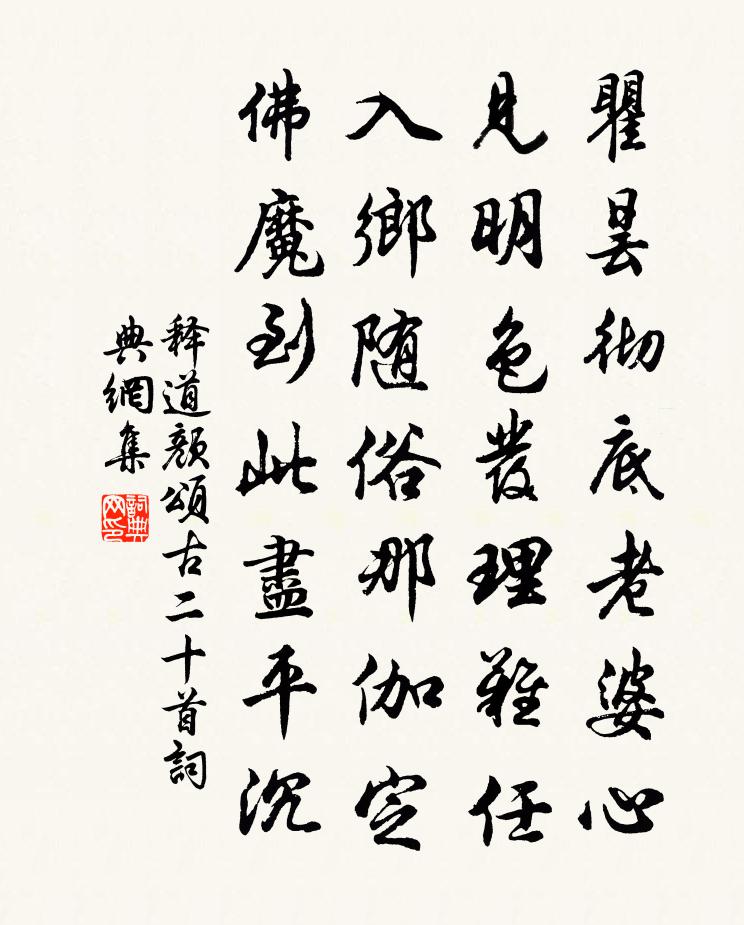 瞿昙彻底老婆心
見明色發理難任
入鄉随俗那伽定
佛魔到此盡平沉
释道颜頌古二十首詞
典網集
詞典
网印